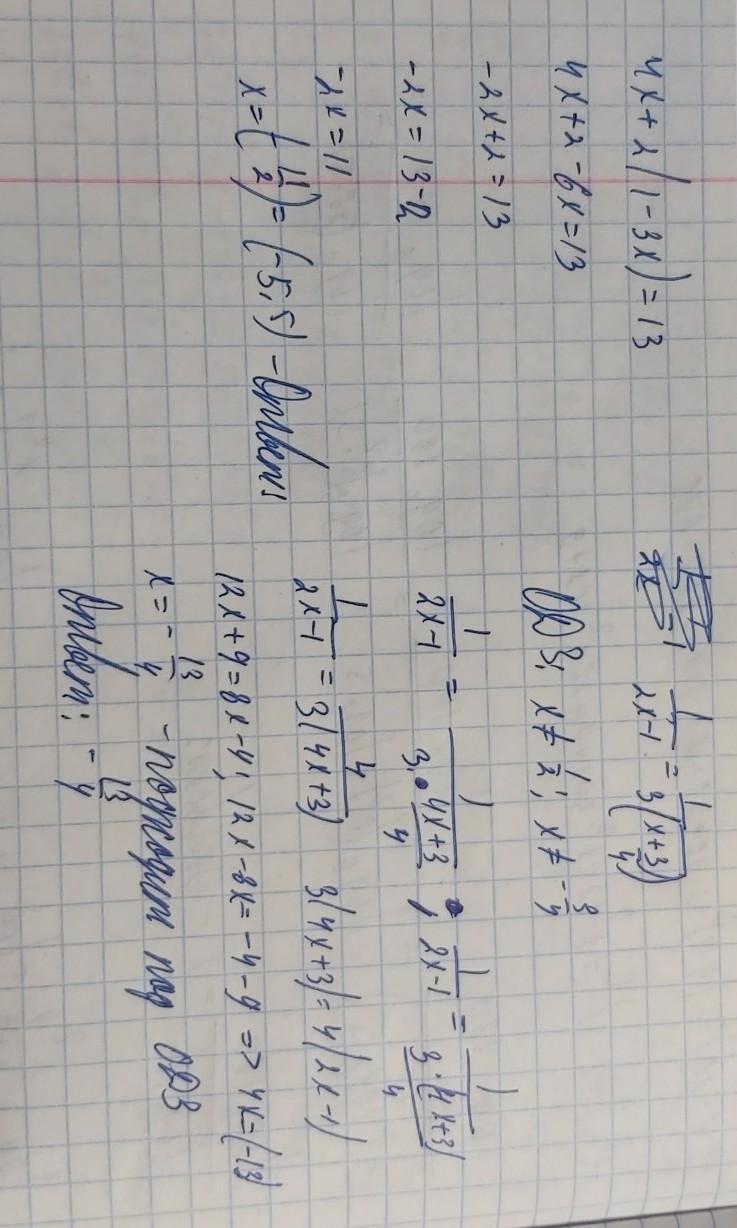 4x+2(1-3x)=13
4x+2-6x=13
-2x+2=13
-2x=13-2
-2x=11
x=(-11/2)=(-5,5) - Ответ
1/(2x-1) = 1/(3(x+3/4))
ОДЗ; x≠1/2; x≠-3/4
1/(2x-1) = 1/(3·(4x+3)/4); 1/(2x-1) = 1/(3·(4x+3)/4)
1/(2x-1) = 4/(3(4x+3)) 3(4x+3)=4(2x-1)
12x+9=8x-4; 12x-8x=-4-9 => 4x=(-13)
x=-13/4 - подходит под ОДЗ
Ответ: -13/4